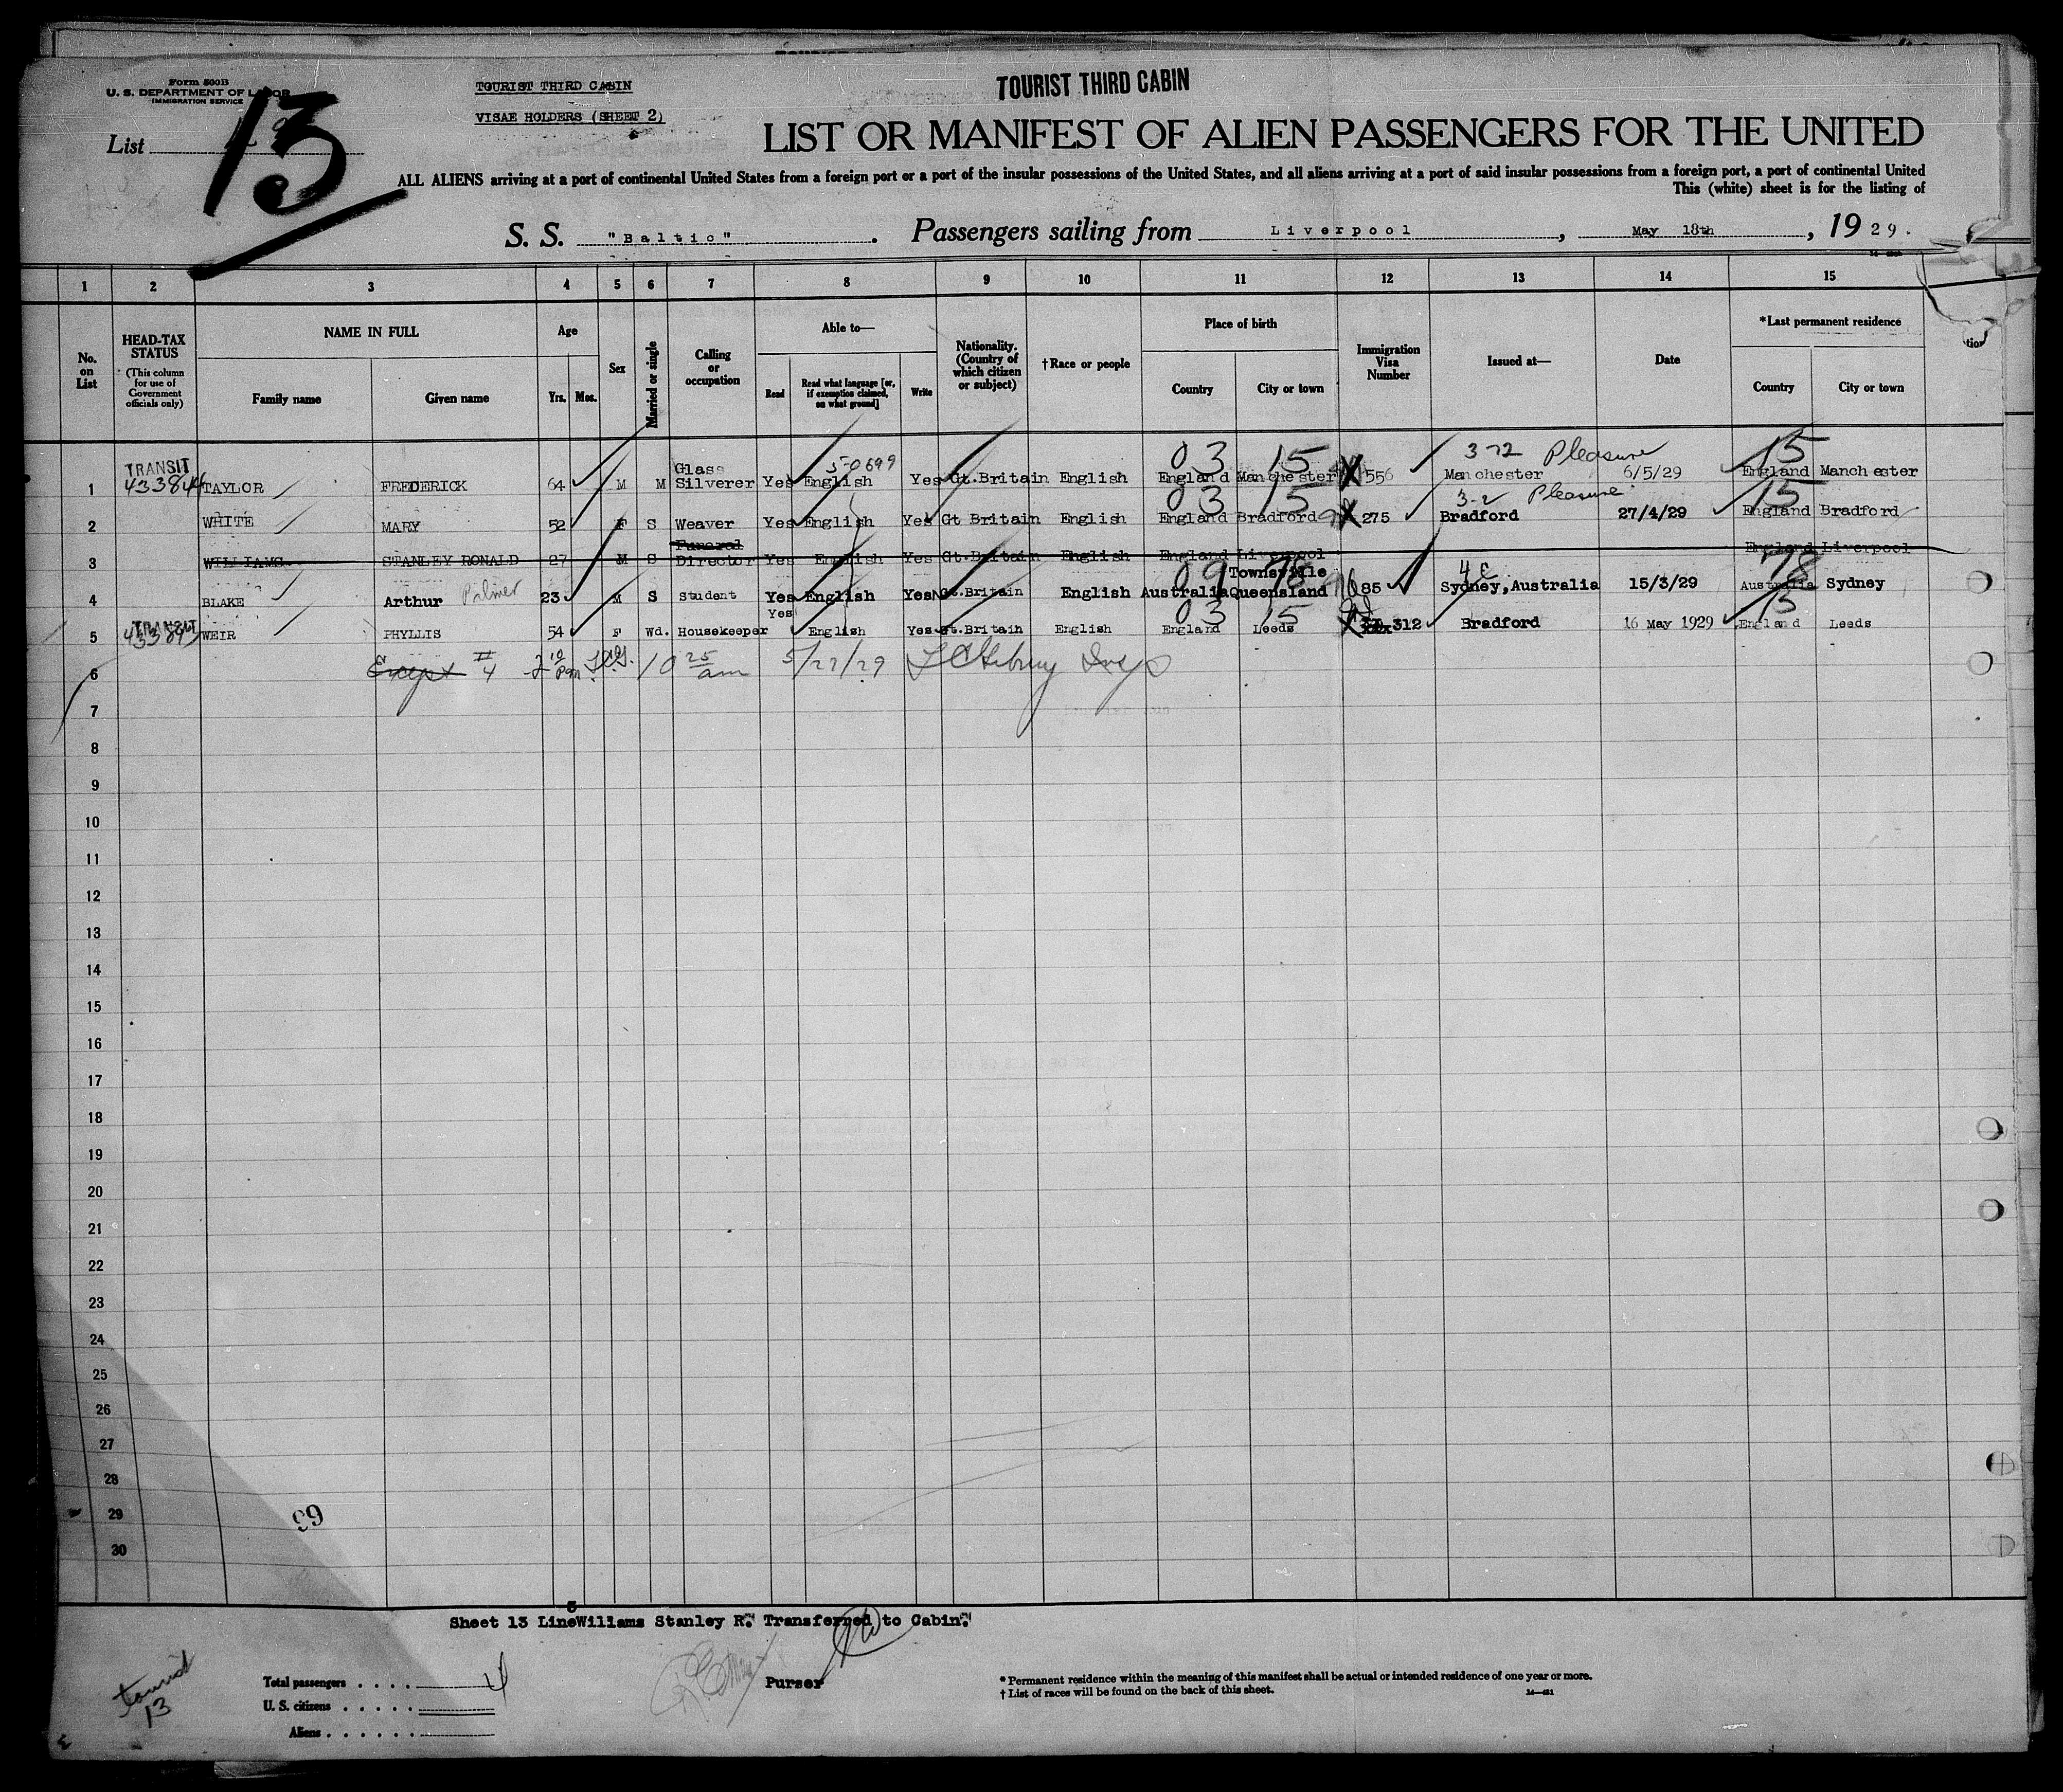 Form 500B
U. S. DEPARTMENT OF LABOR
IMMIGRATION SERVICE
List 13
TOURIST THIRD CABIN
VISAE HOLDERS (SHEET 2)
TOURIST THIRD CABIN
LIST OR MANIFEST OF ALIEN PASSENGERS FOR THE UNITED
ALL ALIENS arriving at a port of continental United States from a foreign port or a port of the insular possessions of the United States, and all aliens arriving at a port of said insular possessions from a foreign port, a port of continental United
This (white) sheet is for the listing of
S. S. "Baltic". Passengers sailing from Liverpool, May 18th, 1929.
1 2 3 4 5 6 7 8 9 10 11 12 13 14 15
No. on List
HEAD-TAX STATUS (This column for use of Government officials only)
NAME IN FULL
Family name Given name
Age
Yrs. Mos.
Sex
Married or single
Calling or occupation
Able to—
Read Read what language [or, if exemption claimed, on what ground] Write
Nationality. (Country of which citizen or subject)
†Race or people
Place of birth
Country City or town
Immigration Visa Number
Issued at—
Date
*Last permanent residence
Country City or town
tion
03 15 3-72 Pleasure 15
1 TRANSIT 433844 TAYLOR FREDERICK 64 M M Glass Silverer Yes 5-0699 English Yes Gt.Britain English England Manchester 556 Manchester 6/5/29 England Manchester
03 15 3-2 Pleasure 15
2 WHITE MARY 52 F S Weaver Yes English Yes Gt Britain English England Bradford 275 Bradford 27/4/29 England Bradford
3 WILLIAMS STANLEY RONALD 27 M S Funeral Director Yes English Yes Gt.Britain English England Liverpool England Liverpool
09 78 78
4 BLAKE Arthur Palmer 23 M S Student Yes English Yes Gt.Britain English Australia Townsville Queensland 85 Sydney, Australia 15/3/29 Australia Sydney
03 15 15
5 TRANSIT WEIR PHYLLIS 54 F Wd. Housekeeper Yes English Yes Gt.Britain English England Leeds 312 Bradford 16 May 1929 England Leeds
6 Except 4 10 25 am 5/27/29
7
8
9
10
11
12
13
14
15
16
17
18
19
20
21
22
23
24
25
26
27
28
29
30
99
3
Sheet 13 Line Williams Stanley R. Transferred to Cabin.
Purser
tourist
13
Total passengers . . . . 4
U. S. citizens . . . . .
Aliens . . . . . .
* Permanent residence within the meaning of this manifest shall be actual or intended residence of one year or more.
† List of races will be found on the back of this sheet.